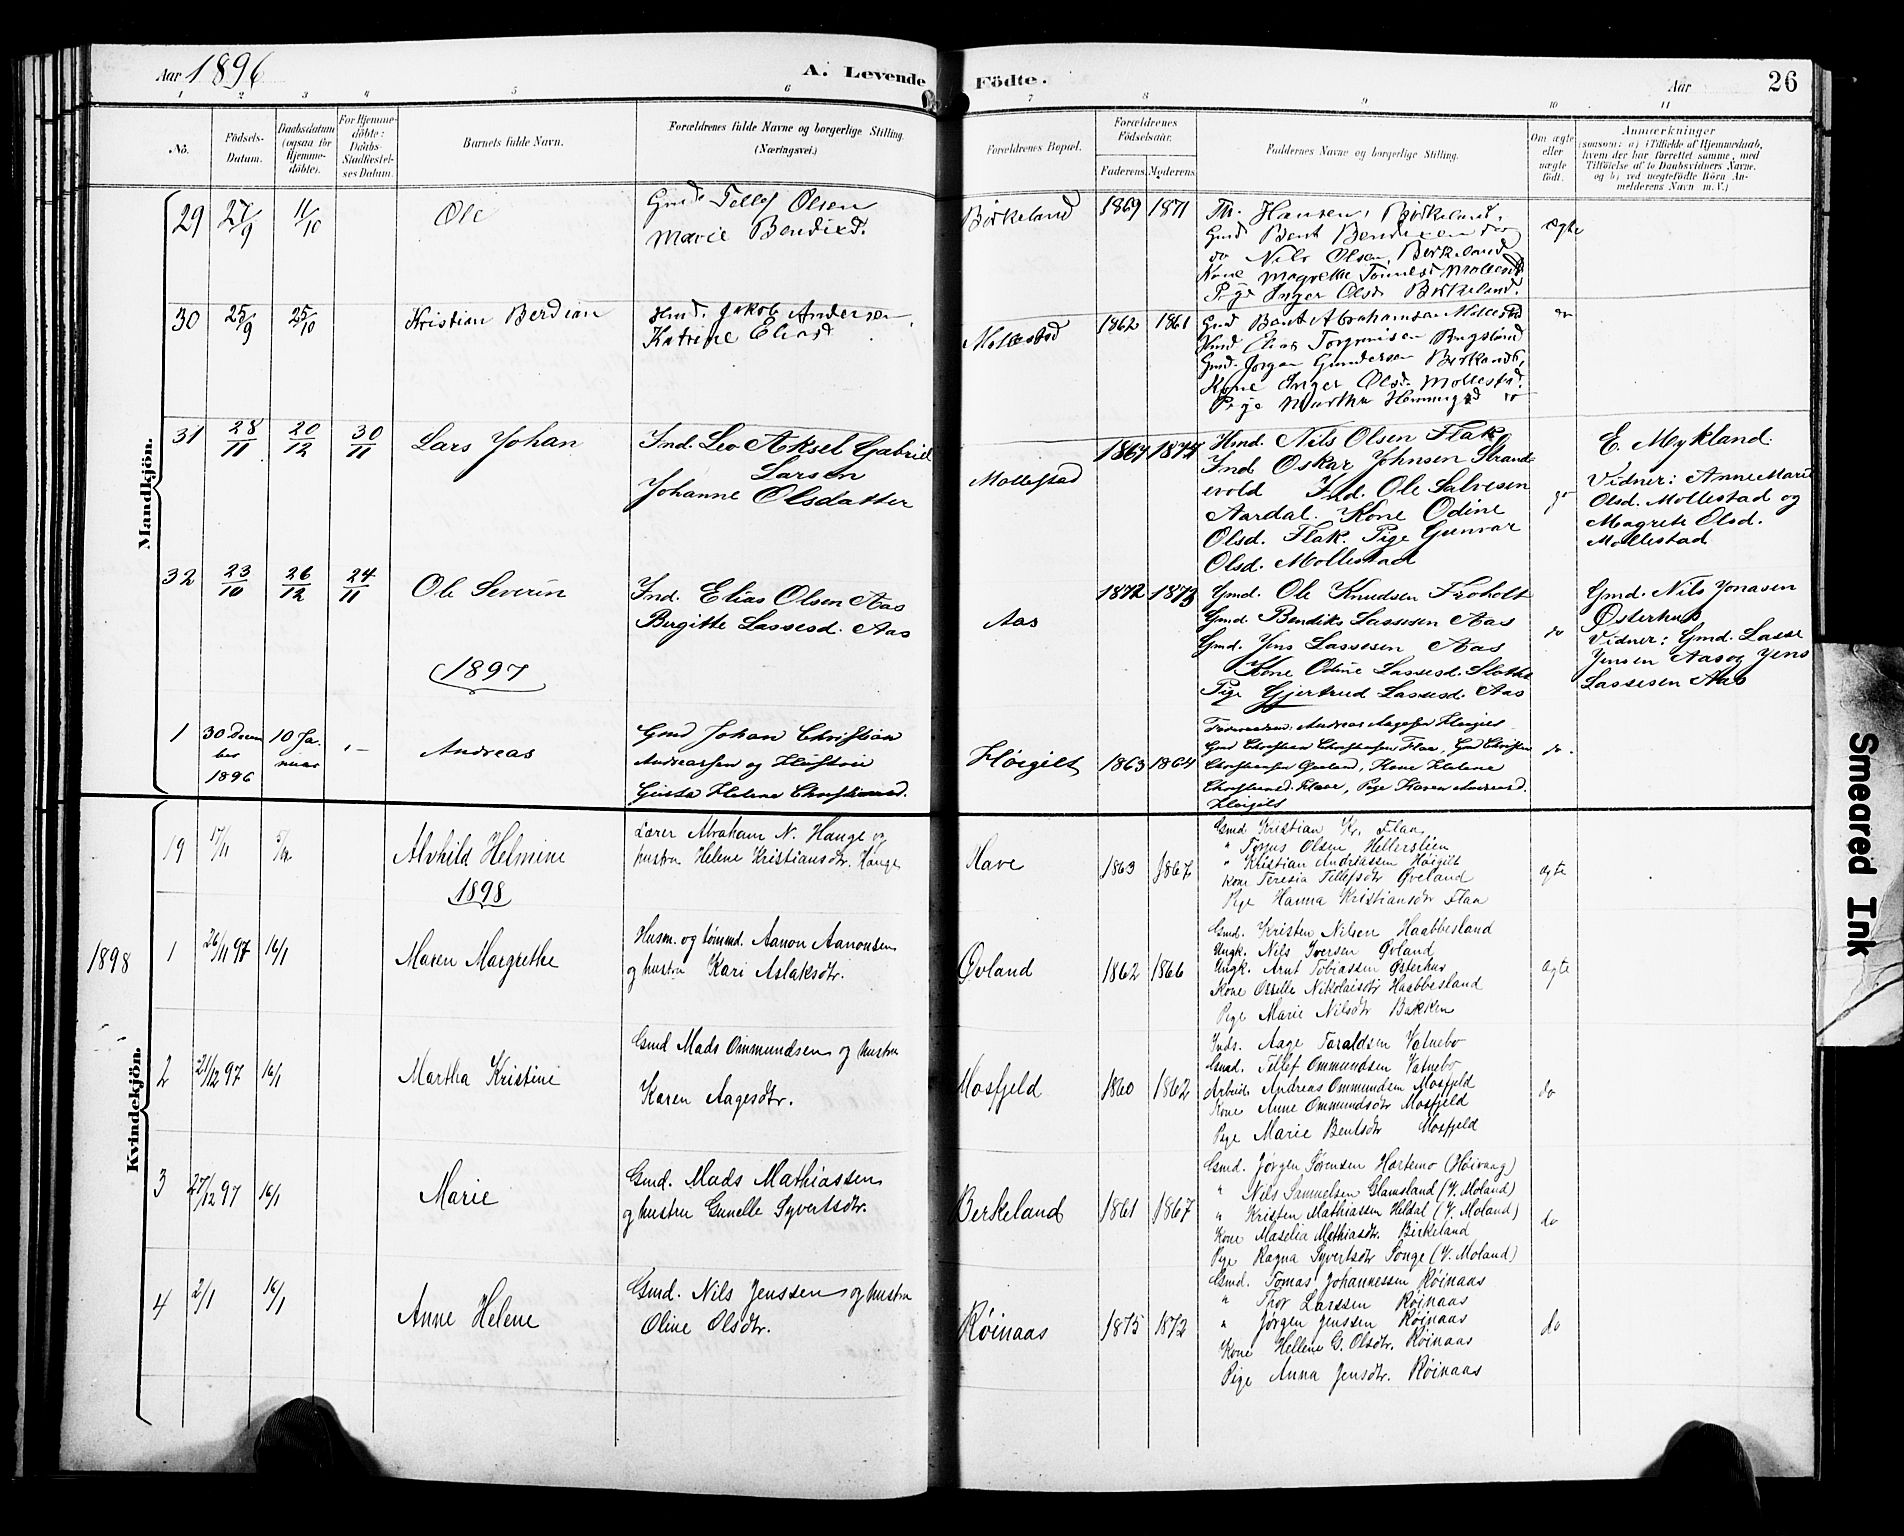 Aar 1896
A. Levende Födte.
Aar
26
1 2 3 4 5 6 7 8 9 10 11
No.
Födsels-
Datum.
Daabsdatum
(ogsaa for
Hjemme-
döbte).
For Hjemme-
döbte:
Daabs-
Stadfæstel-
ses Datum.
Barnets fulde Navn.
Forældrenes fulde Navne og borgerlige Stilling.
(Næringsvei.)
Forældrenes Bopæl.
Forældrenes
Födselsaar.
Faderens
Moderens
Faddernes Navne og borgerlige Stilling.
Om ægte
eller
uægte
födt.
Anmærkninger
saasom: a) i Tilfælde af Hjemmedaab,
hvem der har forrettet samme, med
Tilföielse af to Daabsvidners Navne.
og b) ved uægtefödte Börn An-
melderens Navn m. V.)
Mandkjön.
29 27/9 11/10 Ole
Gmd Tellef Olsen
Marie Bendixd.
Birkeland 1869 1871
Th. Hansen, Birkeland.
Gmd Bent Bendixen do
do Nils Olsen, Birkeland
Kone Magrethe Tønnesd Mollestd
Pige Inger Olsd Birkeland.
Ægte
30 25/9 25/10 Kristian Berdian
Hmd. Jakob Andersen
Katrine Eliasd
Mollestad 1862 1861
Gmd Bent Abrahamsen Mollestd
Hmd Elias
Gmd. Jørgen Gundersen
Kone Inger Olsd. Mollestad.
Pige Martha do
do
31 28/11 20/12 30/11 Lars Johan
Ind. Leo Aksel Gabriel
Larsen
Johanne Olsdatter
Mollestad 1867 1874
Hmd. Nils Olsen Flak
Ind Oskar Johnsen Strande
vold Ind. Ole Salvesen
Aardal. Kone Odine
Olsd. Flak. Pige Gunvor
Olsd. Mollestad
do
E. Mykland.
Vidner: Anne Marie
Olsd. Mollestad og
Magrete Olsd.
Mollestad
32 23/10 26/12 24/11 Ole Severin
Ind. Elias Olsen Aas
Birgitte Lassesd. Aas
Aas 1872 1873
Gmd. Ole Knudsen Froholt
Gmd. Bendiks Lassesen Aas
Gmd. Jens Lassesen Aas
Kone Odine Lassesd. Slotte
Pige Gjertrud Lassesd. Aas
do
Gmd. Nils Jonasen
Østerhus
Vidner: Gmd. Lasse
Jensen Aas og Jens
Lassesen Aas
1897
1 30 Decem
ber
1896
10 Ja.
nuar
Andreas
Gmd Johan Christian
Andreassen og Hustru
Gusta Helene Christiansd.
Høigilt 1863 1864
Andreas Aagesen Høigilt
Gmd Christian Christiansen Flaa, Gmd Christen
Christiansen Øveland, Kone Helene
Christiansd. Flaa, Pige Karen Andreasd.
Høigilt
do.
Kvindekjön.
19 17/11 5/12 Alvhild Helmine
Lærer Abraham N. Hauge og
hustru Helene Kristiansdtr. Hauge
Have 1863 1867
Gmd Kristian Kr. Flaa
" Tarjus Olsen Hellersleien
" Kristian Andreassen Høigilt
Kone Teresia Tellefsdtr Øveland
Pige Hanna Kristiansdtr Flaa
ægte
1898
1898
1 26/11 97 16/1 Maren Margrethe
Husm. og tømmd. Aanon Aanonsen
og hustru Kari Aslaksdtr.
Øvland 1862 1866
Gmd. Kristen Nilsen Haabbesland
Ungk. Nils Iversen Øvland
Ungk. Arnt Tobiassen Østerhus
Kone Osselle Nikolaisdtr Haabbesland
Pige Marie Nilsdtr Bakken
ægte
2 21/12 97 16/1 Martha Kristine
Gmd Mads Ommundsen og hustru
Karen Aagesdtr.
Mosfjeld 1860 1862
Inds. Aage Taraldsen Vatnebo
Gmd. Tellef Ommundsen Vatnebo
Arbeid. Andreas Ommundsen Mosfjeld
Kone Anne Ommundsdtr Mosfjeld
Pige Marie Bentsdtr Mosfjeld
do
3 27/12 97 16/1 Marie
Gmd. Mads Mathiassen
og hustru Gunelle Syvertsdtr.
Berkeland 1861 1867
Gmd. Jørgen Sørensen Hartemo (Høivaag)
" Nils Samuelsen Glamsland (V. Moland)
" Kristen Mathiassen Heldal (V. Moland)
Kone Maselia Mathiasdtr. Birkeland
Pige Ragna Syvertsdtr Songe (V. Moland)
do
4 2/1 16/1 Anne Helene
Gmd. Nils Jenssen og hustru
Oline Olsdtr.
Røinaas 1875 1872
Gmd. Tomas Johannessen Røinaas
" Thor Larssen Røinaas
" Jørgen Jenssen Røinaas
Kone Hellene G. Olsdtr. Røinaas
Pige Anna Jensdtr. Røinaas
do
Smeared Ink